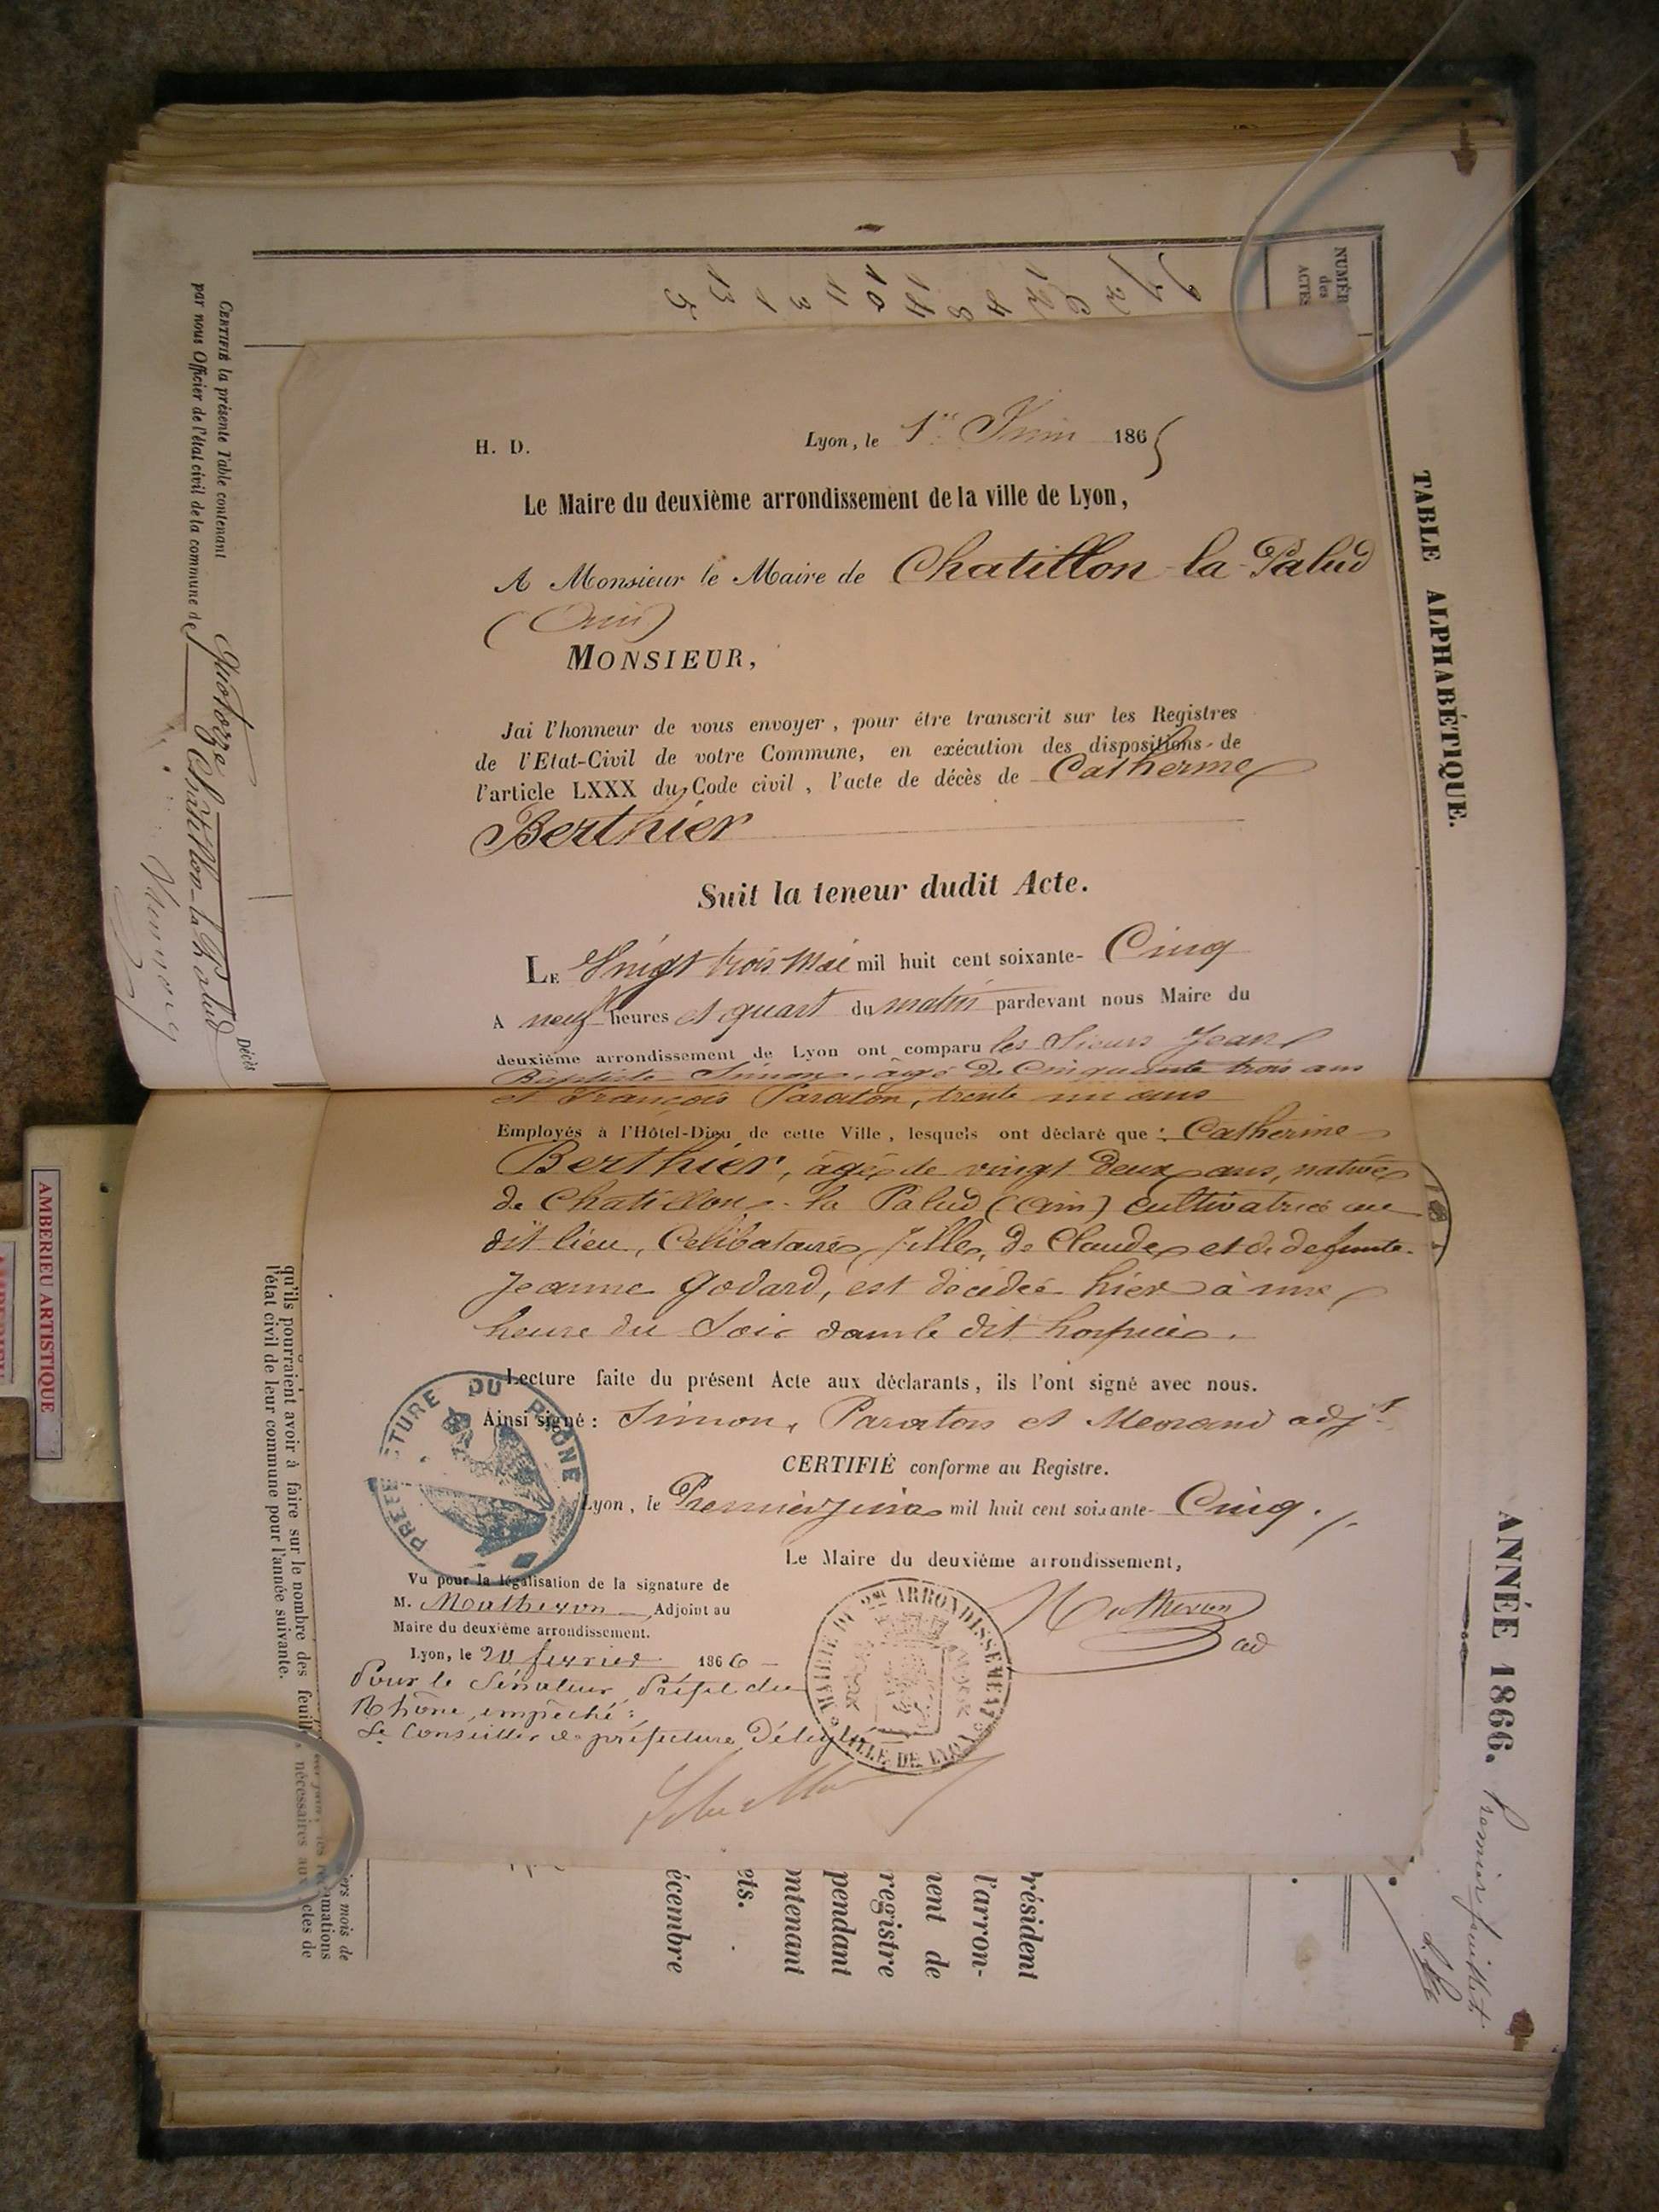 H. D.
Lyon, le 1er Juin 1865
Le Maire du deuxième arrondissement de la ville de Lyon,
A Monsieur le Maire de Chatillon-la-Palud
(Ain)
MONSIEUR,
Jai l'honneur de vous envoyer, pour être transcrit sur les Registres
de l'Etat-Civil de votre Commune, en exécution des dispositions de
l'article LXXX du Code civil, l'acte de décès de Catherine
Berthier
Suit la teneur dudit Acte.
LE Vingt trois Mai mil huit cent soixante- Cinq
A neuf heures et quart du matin pardevant nous Maire du
deuxième arrondissement de Lyon ont comparu les Sieurs Jean
Baptiste Simon, âgé de Cinquante trois ans
et François Paraton, trente un ans
Employés à l'Hôtel-Dieu de cette Ville, lesquels ont déclaré que : Catherine
Berthier, âgée de vingt deux ans, native
de Chatillon-la Palud (Ain) cultivatrice au
dit lieu, Celibataire, fille de Claude et de defunte
Jeanne Godard, est décédée hier à une
heure du Soir dans le dit hospice.
Lecture faite du présent Acte aux déclarants, ils l'ont signé avec nous.
Ainsi signé : Simon, Paraton et Morand adjt
CERTIFIÉ conforme au Registre.
Lyon, le Premier Juin mil huit cent soixante- Cinq ./.
Le Maire du deuxième arrondissement,
Matheron
ad
PRÉFECTURE DU RHÔNE
Vu pour la légalisation de la signature de
M. Matheron Adjoint au
Maire du deuxième arrondissement.
Lyon, le 20 fevrier 1866
Pour le Sénateur, Préfet du
Rhône, empêché :
Le Conseiller de préfecture Délégué
MAIRIE DU 2me ARRONDISSEMENT
VILLE DE LYON
TABLE ALPHABÉTIQUE.
ANNÉE 1866.
Premier feuillet
NUMÉR
des
ACTES
9
7
2
6
12
4
8
14
10
11
3
1
13
5
CERTIFIÉ la présente Table contenant Quatorze Décès
par nous Officier de l'état civil de la commune de Chatillon-la-Palud
qu'ils pourraient avoir à faire sur le nombre des feuill nécessaires aux actes de
l'état civil de leur commune pour l'année suivante.
iers mois de
amations
résident
l'arron-
nent de
registre
pendant
ntenant
ets.
écembre
AMBERIEU ARTISTIQUE